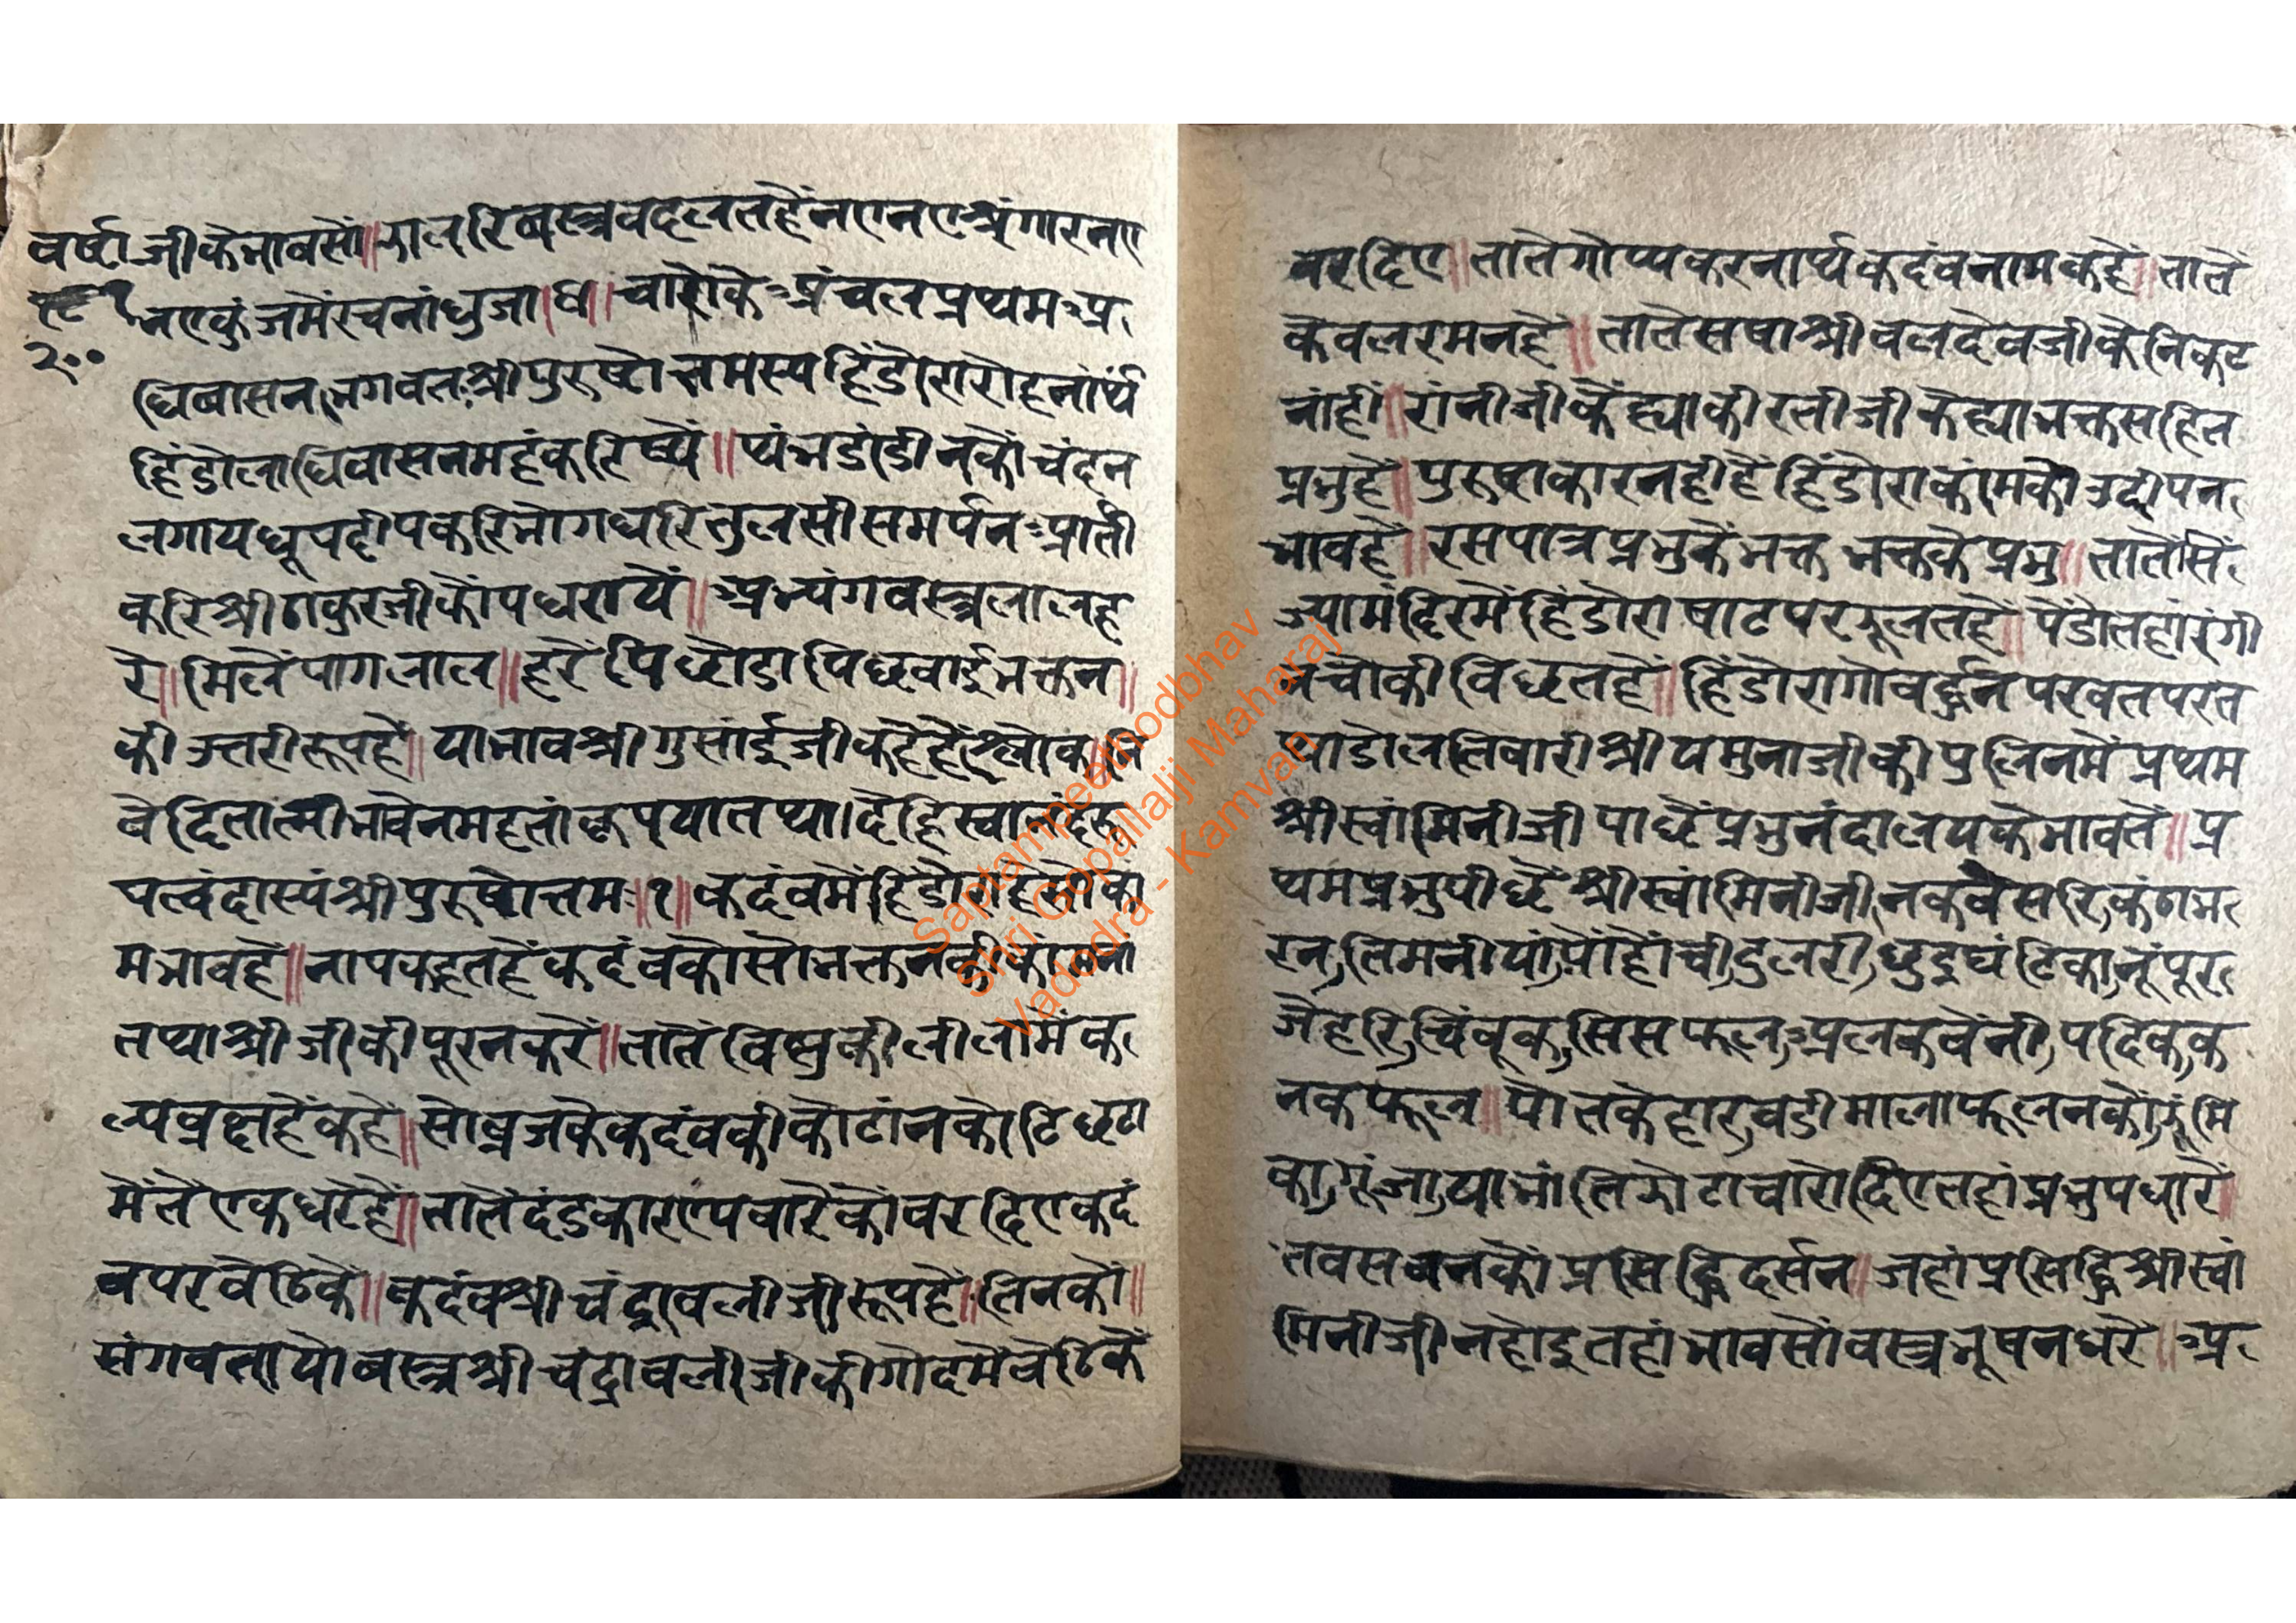 वर्षा जी के भाव सों॥ झालरि वस्त्र बदलत हैं नए नए श्रृंगार नए
२००
नए कुंज में रचनां धुजा।ध॥ चारों के अंचल प्रथम अ
धिवासन भगवत श्री पुरुषोत्तमस्य हिंडोरारोहनार्थं
हिंडोलाधिवासनमहं करिष्ये॥ थंभ डांडी न कों चंदन
लगाय धूप दीप करि भोग धरि तुलसी समर्पन आर्ती
करि श्री ठाकुरजी कों पधरायें॥ अभ्यंग वस्त्र लाल ह
रे॥ मिलें पाग लाल॥ हरें पिछोडा पिछवाई भक्तन॥
की उत्तरी रूप हैं॥ या भाव श्री गुसांई जी कहे हैं श्लोक॥ नि
वेदितात्मी भावेन महतां कृपया तथा। देहि
पत्वं दास्यं श्री पुरुषोत्तम॥१॥ कदंब में हिंडो
म भाव हैं॥ नाप कहत हैं कदंब को सो भक्तन की
तथा श्री जी की पूरन करें॥ तातें विष्णु की लीला में क
ल्प वृक्ष हैं कहें॥ सो व्रज के कदंब की कोटांन कोटि छटा
में तें एक धरें हैं॥ तातें दंडकारण्य वारे कों वर दिए कदं
ब पर बैठि कें॥ कदंब श्री चंद्रावली जी रूप हैं॥ तिन को॥
संग बतायो वस्त्र श्री चंद्रावली जी की गोद में बैठि कें
वर दिए॥ तातें गोप्य करनार्थ कदंब नाम कहें॥ तातें
केवल रमन हैं॥ तातें सषा श्री बलदेव जी के निकट
नांहीं॥ रांनी जी कें ह्या कीरती जी कें ह्या भक्त सहित
प्रभु हैं॥ पुरुषाकार नहीं हैं हिंडोरा कांम को उदीपन
भाव हैं॥ रस पात्र प्रभु के भक्त भक्त के प्रभु॥ तातें सिं
ज्या मंदिर में हिंडोरा षाट पर झूलत हैं॥ पेंडो तहां रंगी
न चोकी बिछत हैं॥ हिंडोरा गोवर्द्धन परवत पर त
था डोल तिवारी श्री यमुना जी की पुलिन में प्रथम
श्री स्वांमिनी जी पाछें प्रभु नंदालय के भाव तें॥ प्र
थम प्रभु पीछें श्री स्वांमिनी जी नकबेसरि कंठाभ
रन, तिमनीयां, पोंहोंची, दुलरी, छुद्रघंटिका, नूंपूर
जेहरि, चिंबूक, सिसफूल, अलक वेंनी, पदिक, क
नक फूल॥ पोत के हार, वडी माला फूलन कों झूंमि
का, गूंजा, या भांति झोटा चारो दिए तहां प्रभु पधारें॥
तब सबन कों प्रसिद्धि दर्सन॥ जहां प्रसिद्धि श्री स्वां
मिनी जी न होइ तहां भाव सों वस्त्र भूषन धरें॥ अ